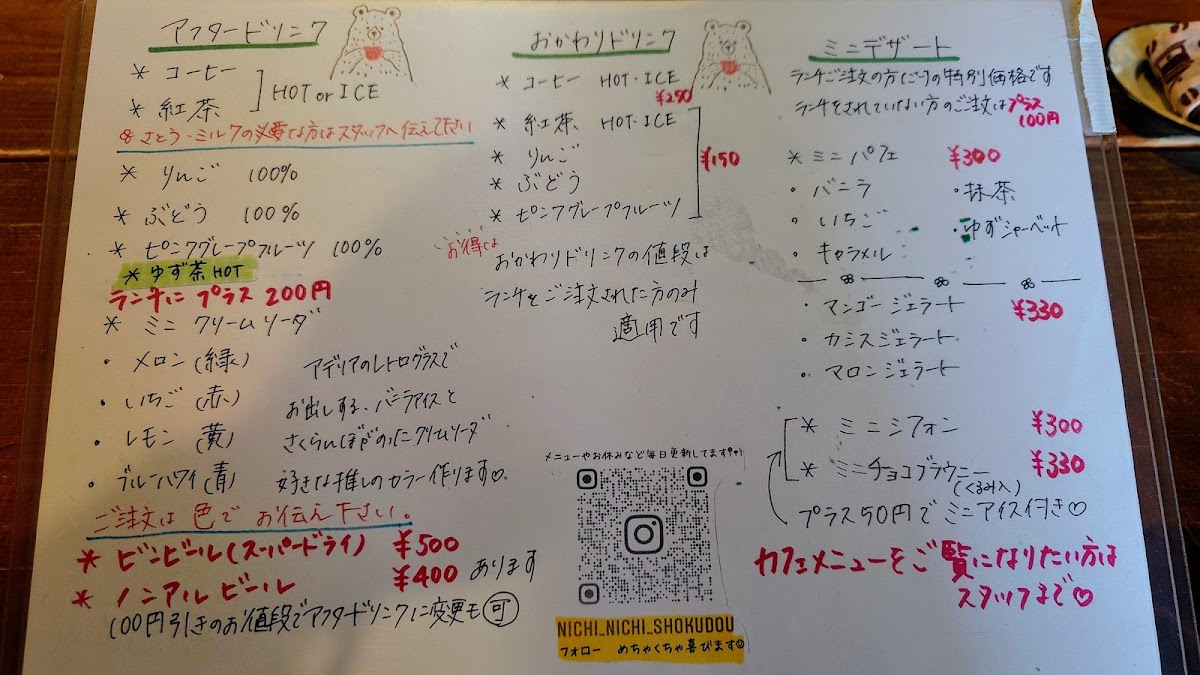 アフタードリンク
* コーヒー
* 紅茶
HOT or ICE
※ さとう・ミルクの必要な方はスタッフへ伝えて下さい
* りんご 100%
* ぶどう 100%
* ピンクグレープフルーツ 100%
* ゆず茶 HOT
ランチに プラス 200円
* ミニ クリームソーダ
・ メロン (緑)
・ いちご (赤)
・ レモン (黄)
・ ブルーハワイ (青)
アデリアのレトログラスで
お出しする、バニラアイスと
さくらんぼがのったクリームソーダ
好きな推しのカラー作ります♡
ご注文は 色で お伝え下さい。
* ビンビール(スーパードライ) ¥500
* ノンアルビール ¥400 あります
100円引きのお値段でアフタードリンクに変更も 可
おかわりドリンク
* コーヒー HOT・ICE
¥250
* 紅茶 HOT・ICE
* りんご
* ぶどう
* ピンクグレープフルーツ
¥150
お得な
おかわりドリンクの値段は
ランチをご注文された方のみ
適用です
メニューやお休みなど毎日更新してます
NICHI_NICHI_SHOKUDOU
フォロー めちゃくちゃ喜びます☺
ミニデザート
ランチご注文の方だけの特別価格です
ランチをされていない方のご注文はプラス
100円
* ミニ パフェ ¥300
・ バニラ ・抹茶
・ いちご ・ゆずシャーベット
・ キャラメル
・ マンゴージェラート ¥330
・ カシスジェラート
・ マロンジェラート
* ミニシフォン ¥300
* ミニチョコブラウニー ¥330
(くるみ入)
プラス50円で ミニアイス付き♡
カフェメニューをご覧になりたい方は
スタッフまで♡